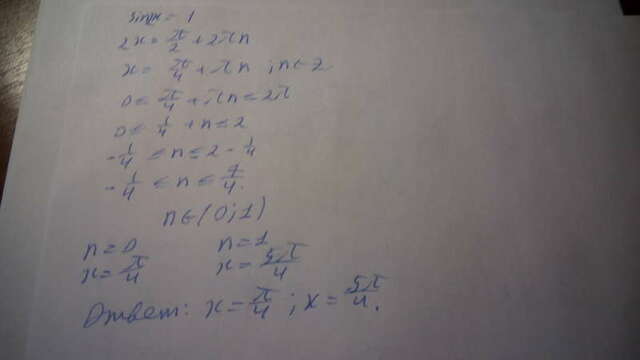 sin2x = 1
2x = π/2 + 2πn
x = π/4 + πn ; n ∈ Z
0 ≤ π/4 + πn ≤ 2π
0 ≤ 1/4 + n ≤ 2
-1/4 ≤ n ≤ 2 - 1/4
-1/4 ≤ n ≤ 7/4.
n ∈ (0; 1)
n = 0 n = 1
x = π/4 x = 5π/4
Ответ: x = π/4 ; x = 5π/4.